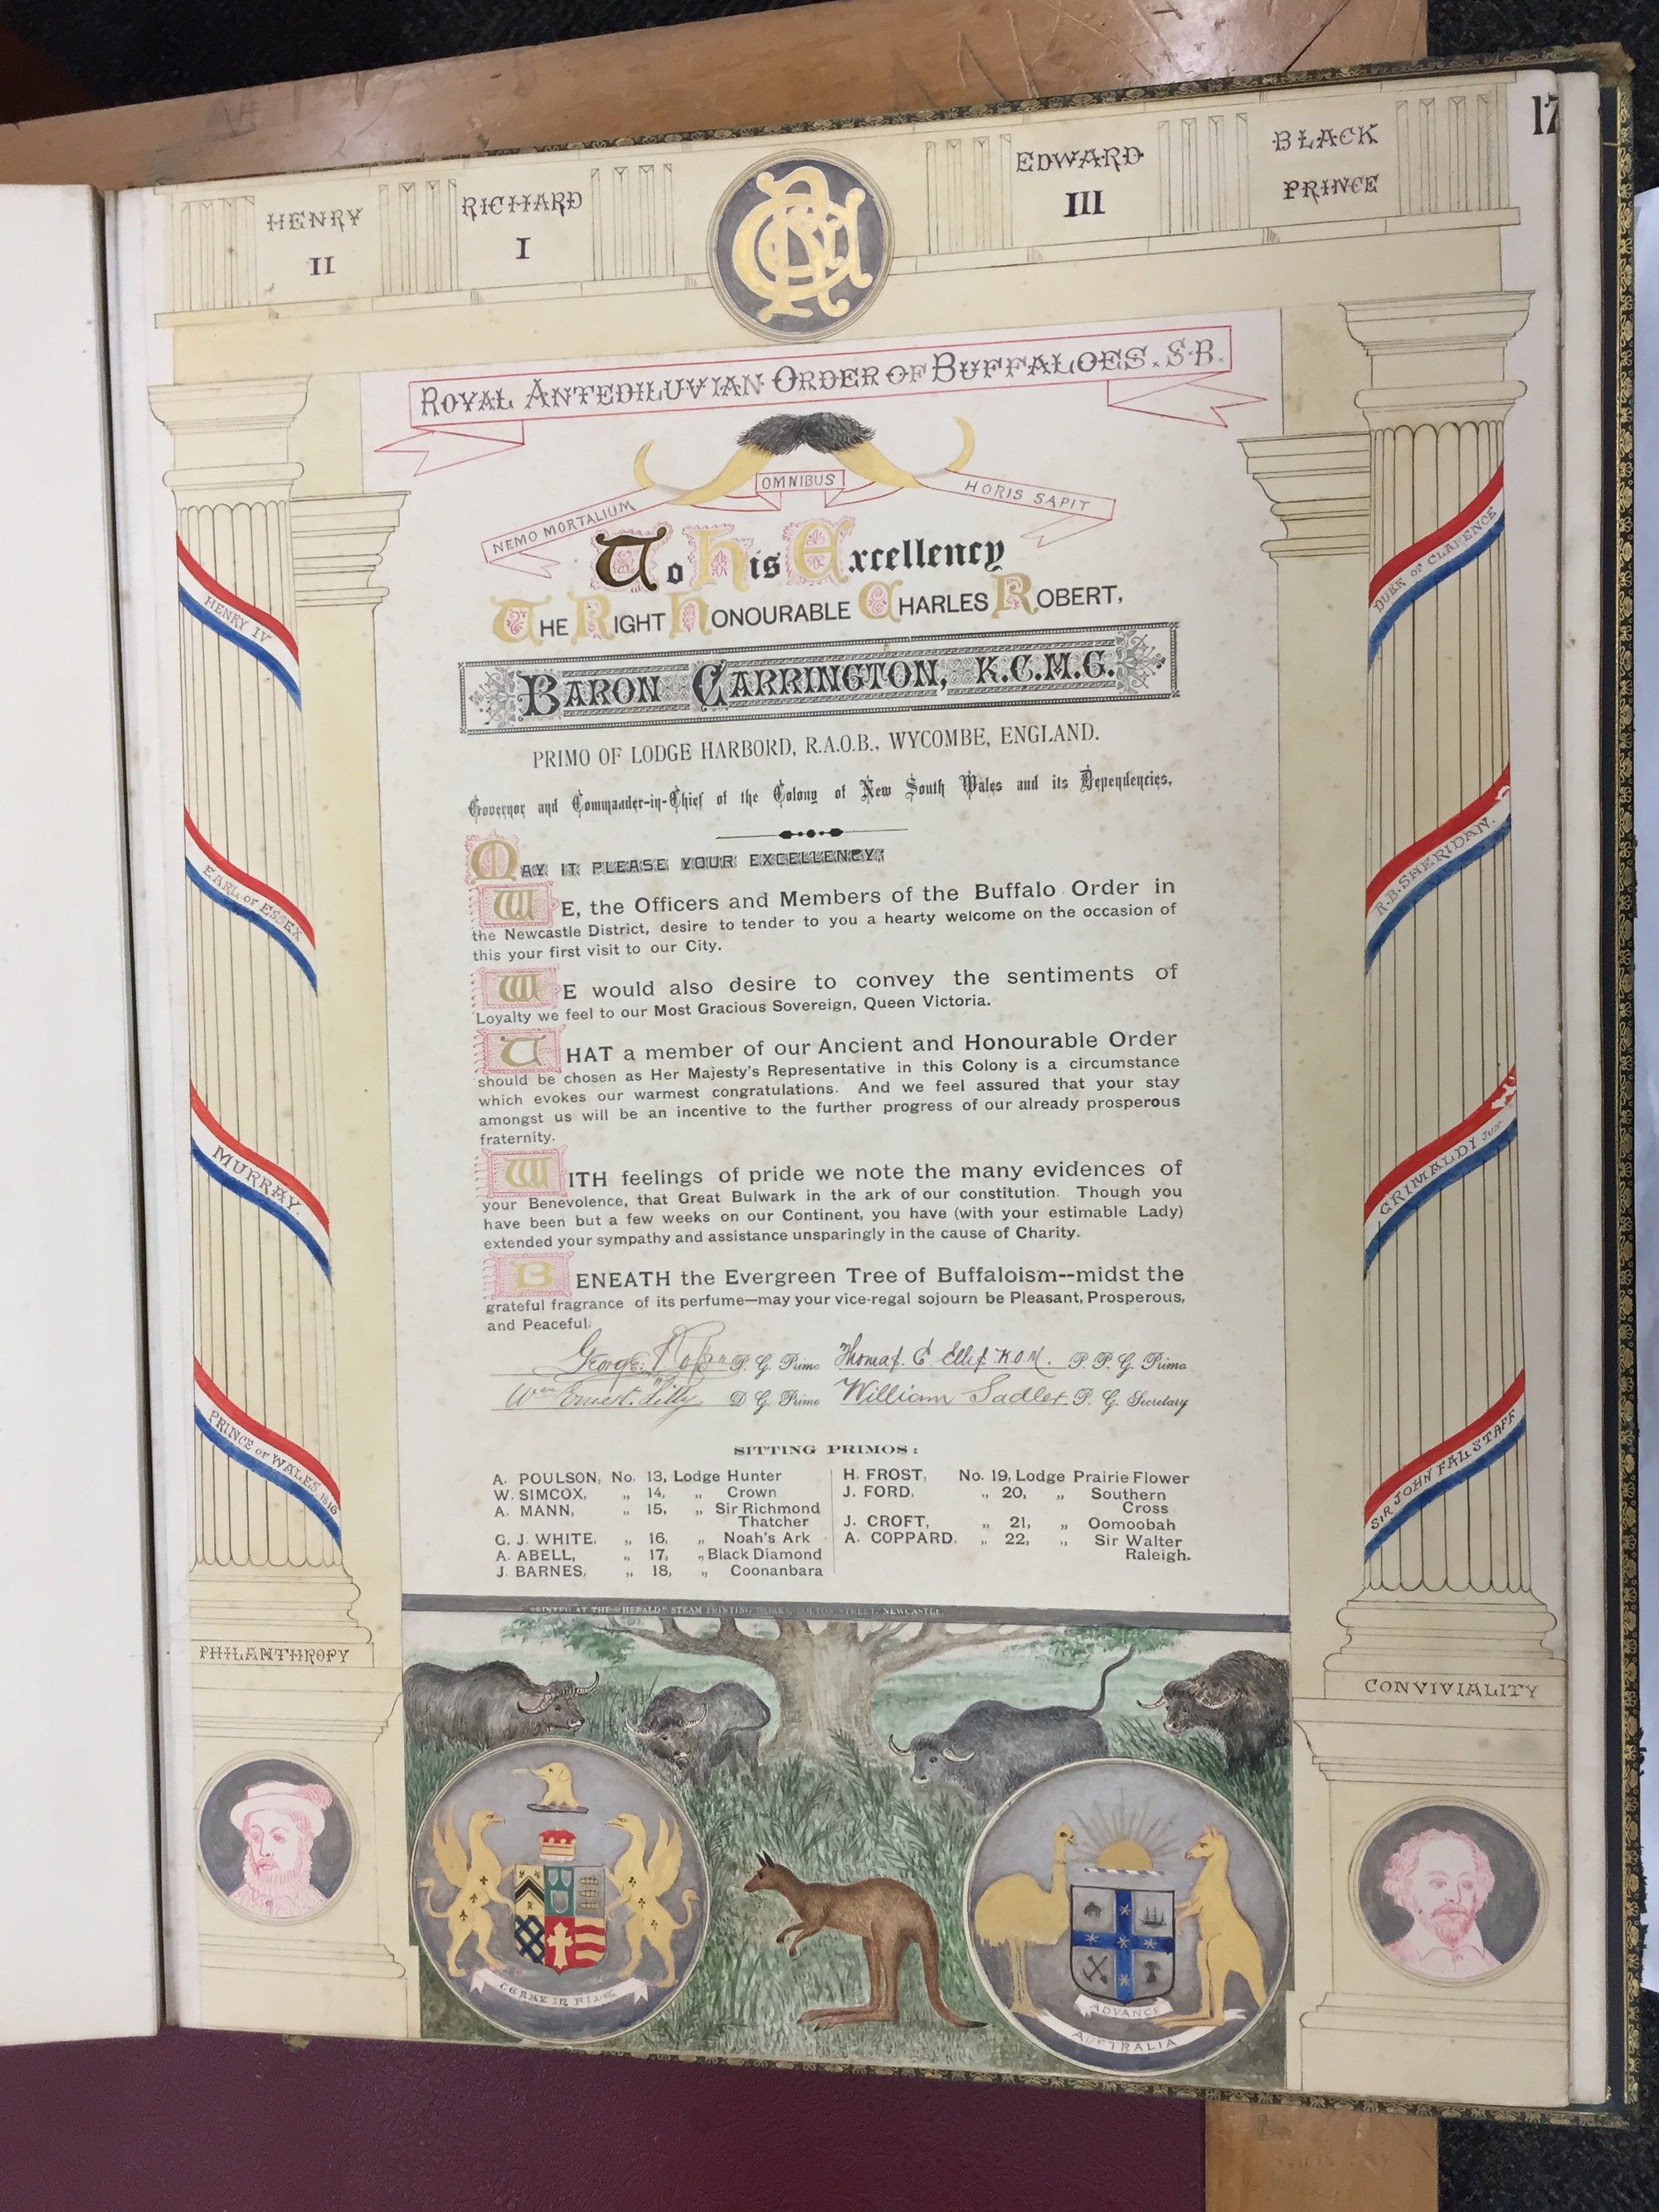 17
HENRY II
RICHARD I
EDWARD III
BLACK PRINCE
ROYAL ANTEDILUVIAN ORDER OF BUFFALOES. S.B.
NEMO MORTALIUM OMNIBUS HORIS SAPIT
To His Excellency
THE RIGHT HONOURABLE CHARLES ROBERT,
BARON CARRINGTON, K.C.M.G.
PRIMO OF LODGE HARBORD, R.A.O.B., WYCOMBE, ENGLAND.
Governor and Commander-in-Chief of the Colony of New South Wales and its Dependencies.
MAY IT PLEASE YOUR EXCELLENCY;
WE, the Officers and Members of the Buffalo Order in
the Newcastle District, desire to tender to you a hearty welcome on the occasion of
this your first visit to our City.
WE would also desire to convey the sentiments of
Loyalty we feel to our Most Gracious Sovereign, Queen Victoria.
THAT a member of our Ancient and Honourable Order
should be chosen as Her Majesty's Representative in this Colony is a circumstance
which evokes our warmest congratulations. And we feel assured that your stay
amongst us will be an incentive to the further progress of our already prosperous
fraternity.
WITH feelings of pride we note the many evidences of
your Benevolence, that Great Bulwark in the ark of our constitution. Though you
have been but a few weeks on our Continent, you have (with your estimable Lady)
extended your sympathy and assistance unsparingly in the cause of Charity.
BENEATH the Evergreen Tree of Buffaloism--midst the
grateful fragrance of its perfume—may your vice-regal sojourn be Pleasant, Prosperous,
and Peaceful.
George P. G. Primo Thomas. C Ellis K.O.M. P. P. G. Primo
Wm Ernest. Lilly D G Primo William Sadler P. G. Secretary
SITTING PRIMOS:
A. POULSON, No. 13, Lodge Hunter
W. SIMCOX, „ 14, „ Crown
A. MANN, „ 15, „ Sir Richmond
Thatcher
G. J. WHITE. „ 16, „ Noah's Ark
A. ABELL, „ 17, „ Black Diamond
J. BARNES, „ 18, „ Coonanbara
H. FROST, No. 19, Lodge Prairie Flower
J. FORD, „ 20, „ Southern
Cross
J. CROFT, „ 21, „ Oomoobah
A. COPPARD, „ 22, „ Sir Walter
Raleigh.
PRINTED AT THE "HERALD" STEAM PRINTING WORKS, BOLTON STREET, NEWCASTLE.
HENRY IV
EARL OF ESSEX
MURRAY.
PRINCE OF WALES, 1816
PHILANTHROPY
DUKE OF CLARENCE
R.B. SHERIDAN.
GRIMALDI JUN
SIR JOHN FALSTAFF
CONVIVIALITY
TENAX IN FIDE
ADVANCE
AUSTRALIA